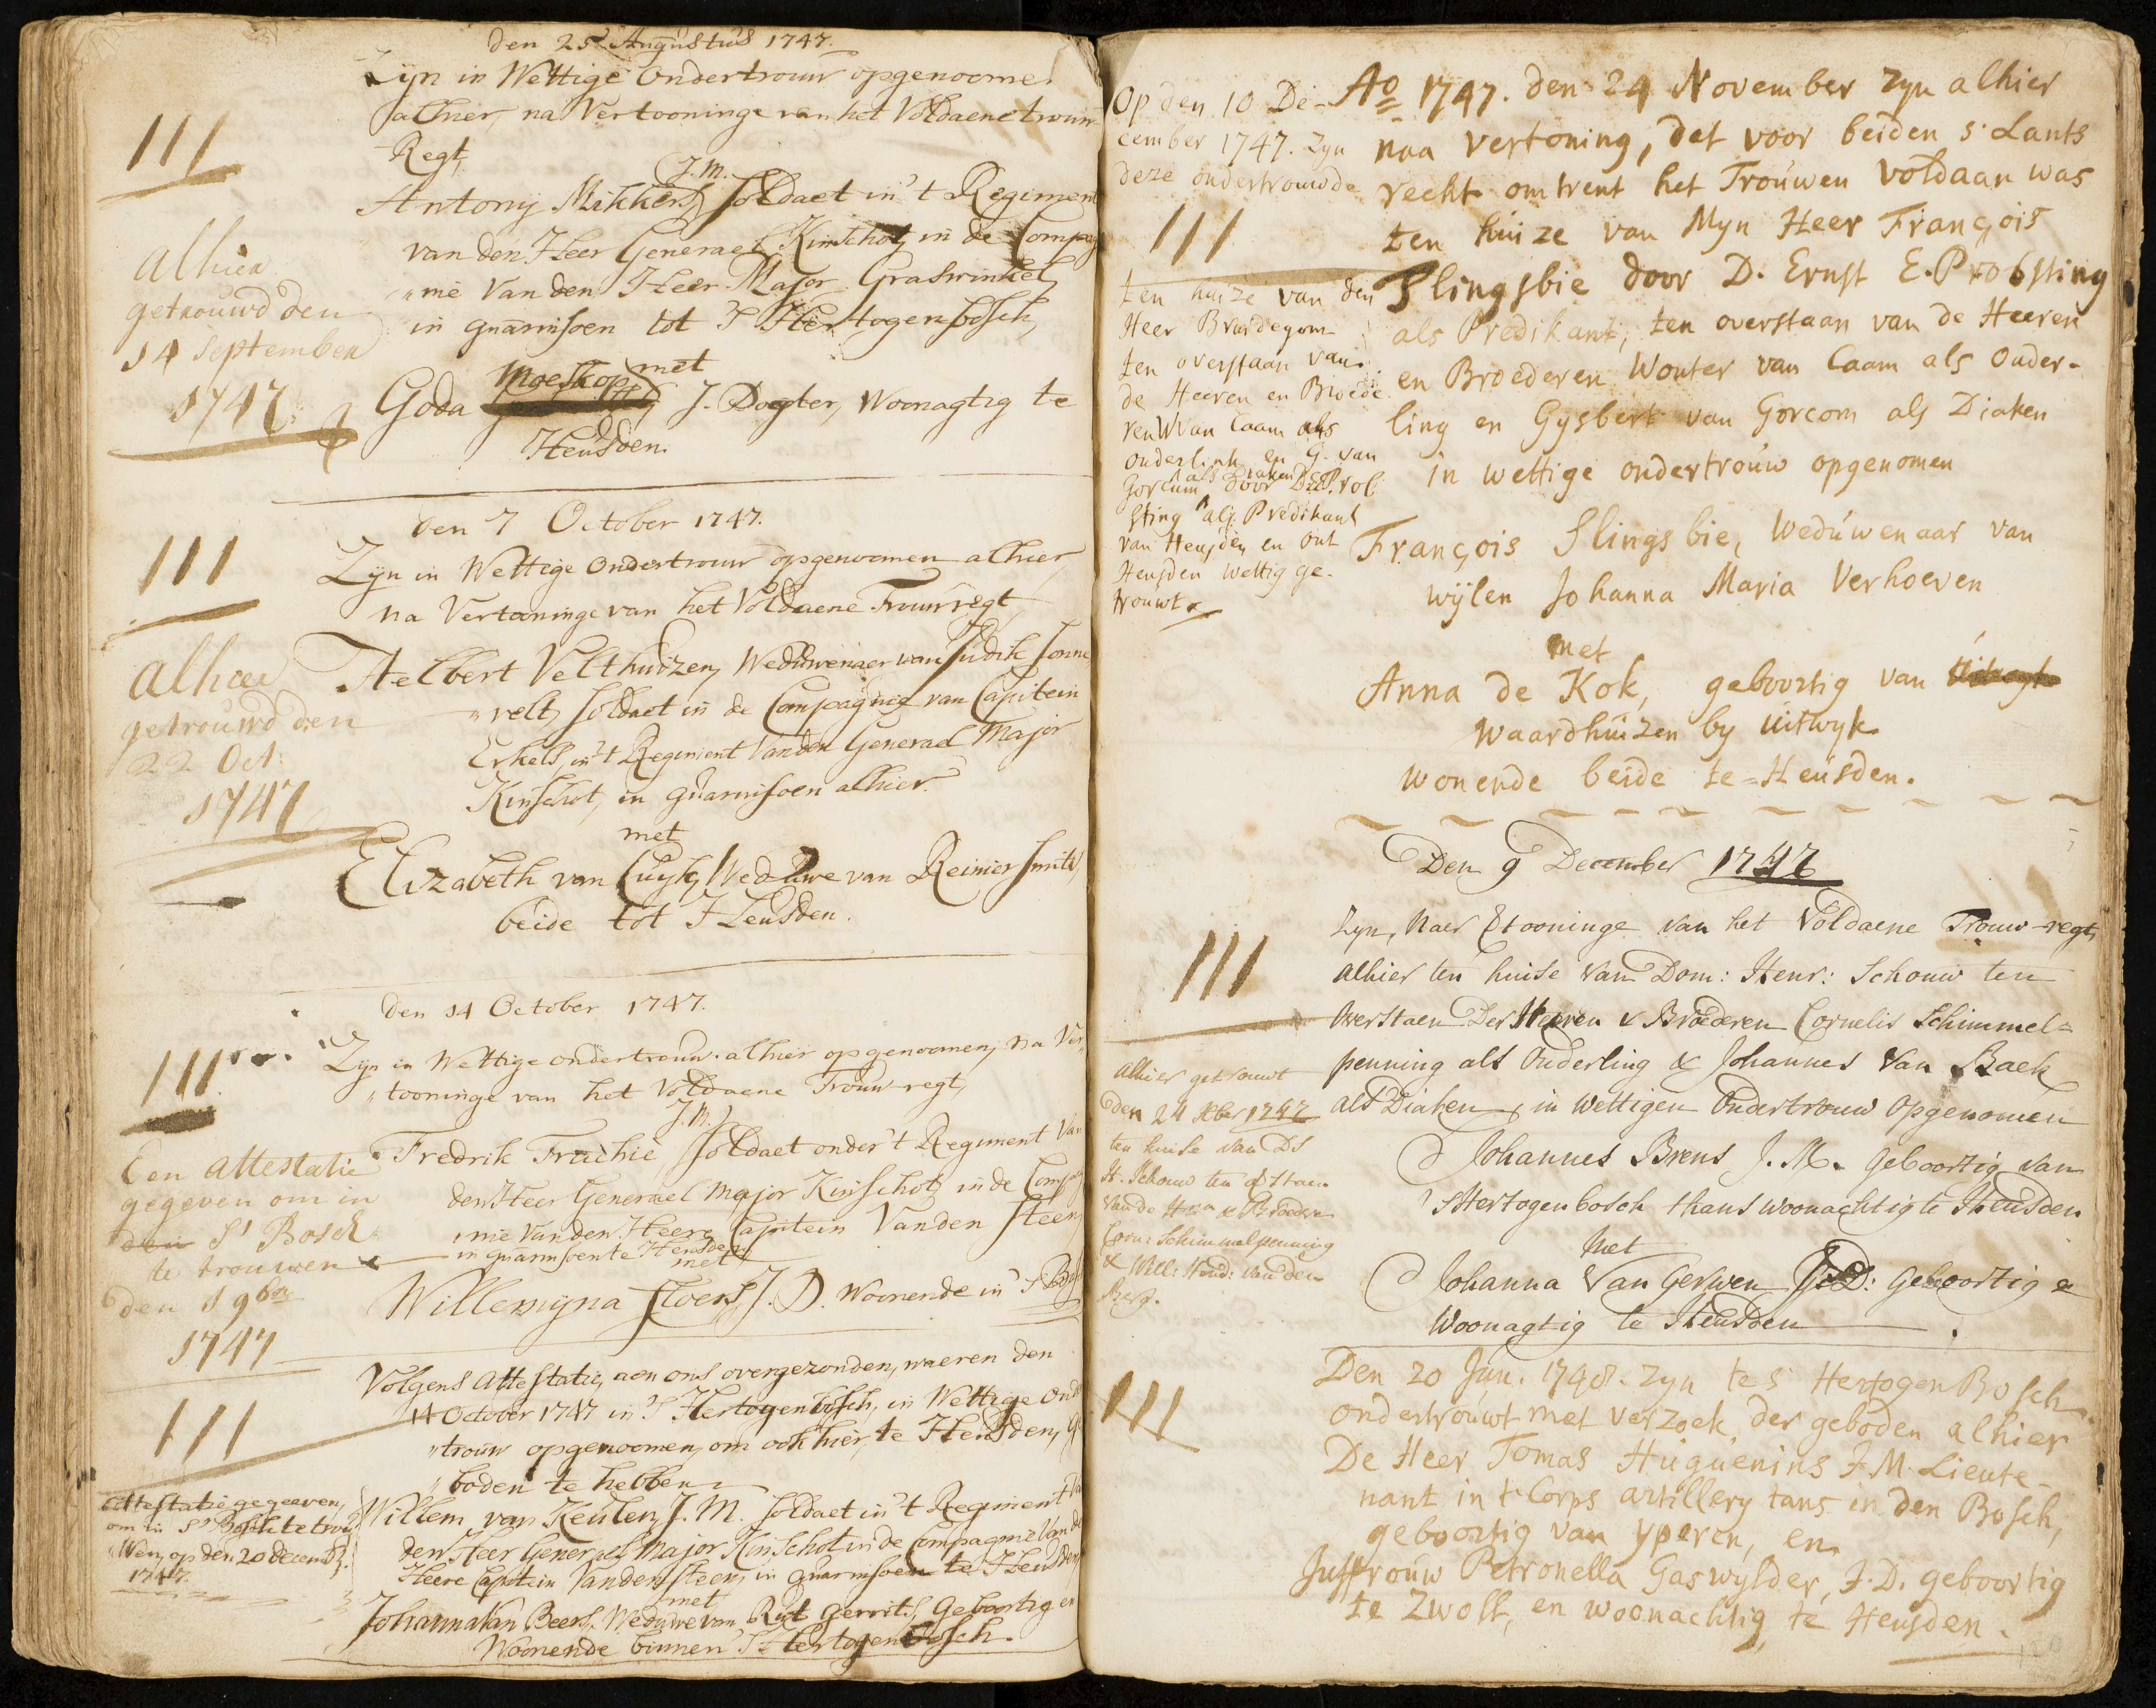 den 25 Augustus 1747.
Zijn in Wettige Ondertrouw opgenoome
alhier, na Vertooninge van het Voldaene trouw
Regt,
J. M.
Antony Mikkers, soldaet in 't Regiment
van den Heer Generael Kinschot, in de Compag
"nie Van den Heer Major Graswinkel,
in guarnisoen tot S Hertogenbosch,
met
Moeskop
Goda J. Dogter, Woonagtig te
Heusden.
111
alhier
getrouwd den
14 September
1747.
den 7 October 1747.
Zijn in Wettige Ondertrouw opgenoomen alhier,
na Vertooninge van het Voldaene Trouwregt,
Aelbert Velthuizen, Weduwenaer van Judik Sonne
"velt, soldaet in de Compagnie van Capitein
Erkels, in 't Regiment Van den Generael Major
Kinschot, in guarnisoen alhier.
met
Elizabeth van Cuyk, Weduwe van Reinier Smits,
beide tot Heusden.
111
alhier
getrouwd den
22 Oct:
1747
den 14 October 1747.
Zijn in Wettige ondertrouw alhier opgenoomen, na Ver,
"tooninge van het Voldaene Trouw-regt,
J. M.
Fredrik Fruchie soldaet onder 't Regiment Van
den Heer Generael Major Kinschot, in de Comp
"nie Van den Heere Capitein Vanden Steen,
in guarnisoen te Heusden
met
Willemyna Floers, J. D. Woonende in 'S Bosch
111
Een attestatie
gegeven om in
den S' Bosch
te trouwen
den 1 9ber
1747
Volgens attestatie, aen ons overgezonden, waeren den
14 October 1747 in 'S Hertogenbosch, in Wettige Onder
"trouw opgenoomen, om ook hier, te Heusden, ge
"boden te hebben
Willem van Keulen, J. M. soldaet in 't Regiment Va
den Heer Generael Major Kinschot in de Compagnie Van de
Heere Capitein Vanden Steen, in guarnisoen te Heusden,
met
Johanna Van Beers, Weduwe van Rut Gerrits, Geboortig en
Woonende binnen 'S Hertogenbosch.
111
Attestatie gegeeven,
om in S' Bosch te trou
"wen, op den 20 decemb:
1747.
Op den 10 De-
cember 1747. Zyn
deze ondertrouwde
111
ten huize van den
Heer Bruidegom
ten overstaan van
de Heeren en Broede
ren W van Caam als
Ouderlink en G. van
Gorcum als Diaken door D E Prob
sting als Predikant
van Heusden en Out
Heusden wettig ge-
trouwt
Ao 1747. den 24 November zyn alhier
naa vertoning, dat voor beiden s' Lants
recht omtrent het Trouwen voldaan was
ten huize van Myn Heer François
Slingsbie door D. Ernst E. Probsting
als Predikant, ten overstaan van de Heeren
en Broederen Wouter van Caam als Ouder-
ling en Gysbert van Gorcom als Diaken
in wettige ondertrouw opgenomen
François Slingsbie, Weduwenaar van
wijlen Johanna Maria Verhoeven
met
Anna de Kok, geboortig van
Waardhuizen by Uitwyk
wonende beide te Heusden.
Den 9 December 1747
Zyn, Naer Vtooninge van het Voldaene Trouw-regt,
alhier ten huise van Dom: Henr: Schouw ten
Overstaen Der Heeren & Broederen Cornelis Schimmel=
penning als Ouderling & Johannes Van Baek
als Diaken, in Wettigen Ondertrouw Opgenomen
Johannes Brens J. M. Geboortig van
'S Hertogenbosch thans woonachtig te Heusden
Met
Johanna Van Gerwen J: D: Geboortig &
Woonagtig te Heusden.
111
alhier getrouwt
den 24 Xber 1747
ten huise van Ds
H. Schouw ten Ostaen
van de Hrn & Broedern
Corn: Schimmelpenning
& Will: Hend: Van den
Berg.
Den 20 Jun. 1748. Zyn te s' HertogenBosch
ondertrouwt met verzoek der geboden alhier
De Heer Tomas Huguenins J. M. Lieute-
nant in t Corps artillery tans in den Bosch,
geboortig van yperen, en
Juffrouw Petronella Gaswylder, J. D. geboortig
te Zwoll, en woonachtig te Heusden.
111